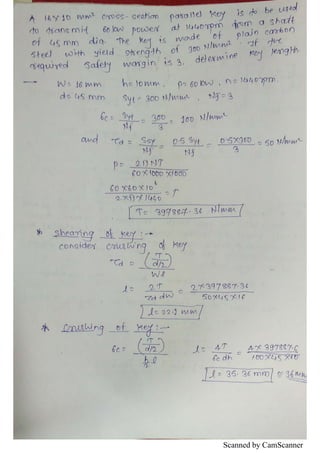 A 14x10 mm² cross-section parallel key is to be used
to transmit 60 kw power at 1440rpm from a shaft
of 45 mm dia. The key is made of plain carbon
steel with yield strength of 300 N/mm². If the
required safety margin is 3. determine key length.
→ W= 16mm h=10mm, P=60kw, n=1440rpm
d=45mm Syt = 300 N/mm², Nf=3
6c = Syt/Nf = 300/3 = 100 N/mm²
and τd = Ssy/Nf = 0.5 Syt/Nf = 0.5x300/3 = 50 N/mm²
P= 2πNT/60x1000x1000
60x60x10⁶/2xπx1440 = T
T= 397887.36 N/mm
* Shearing of key:→
consider crushing of key
τd = (T/d/2)/Wl
l= 2T/τd dw = 2x397887.36/50x45x16
l=22.1 mm
* Crushing of key:→
6c = (T/d/2)/h/2.l l= 4T/6c dh = 4x397887.6/100x45x10
l=35.36mm ≈ 36mm
Scanned by CamScanner